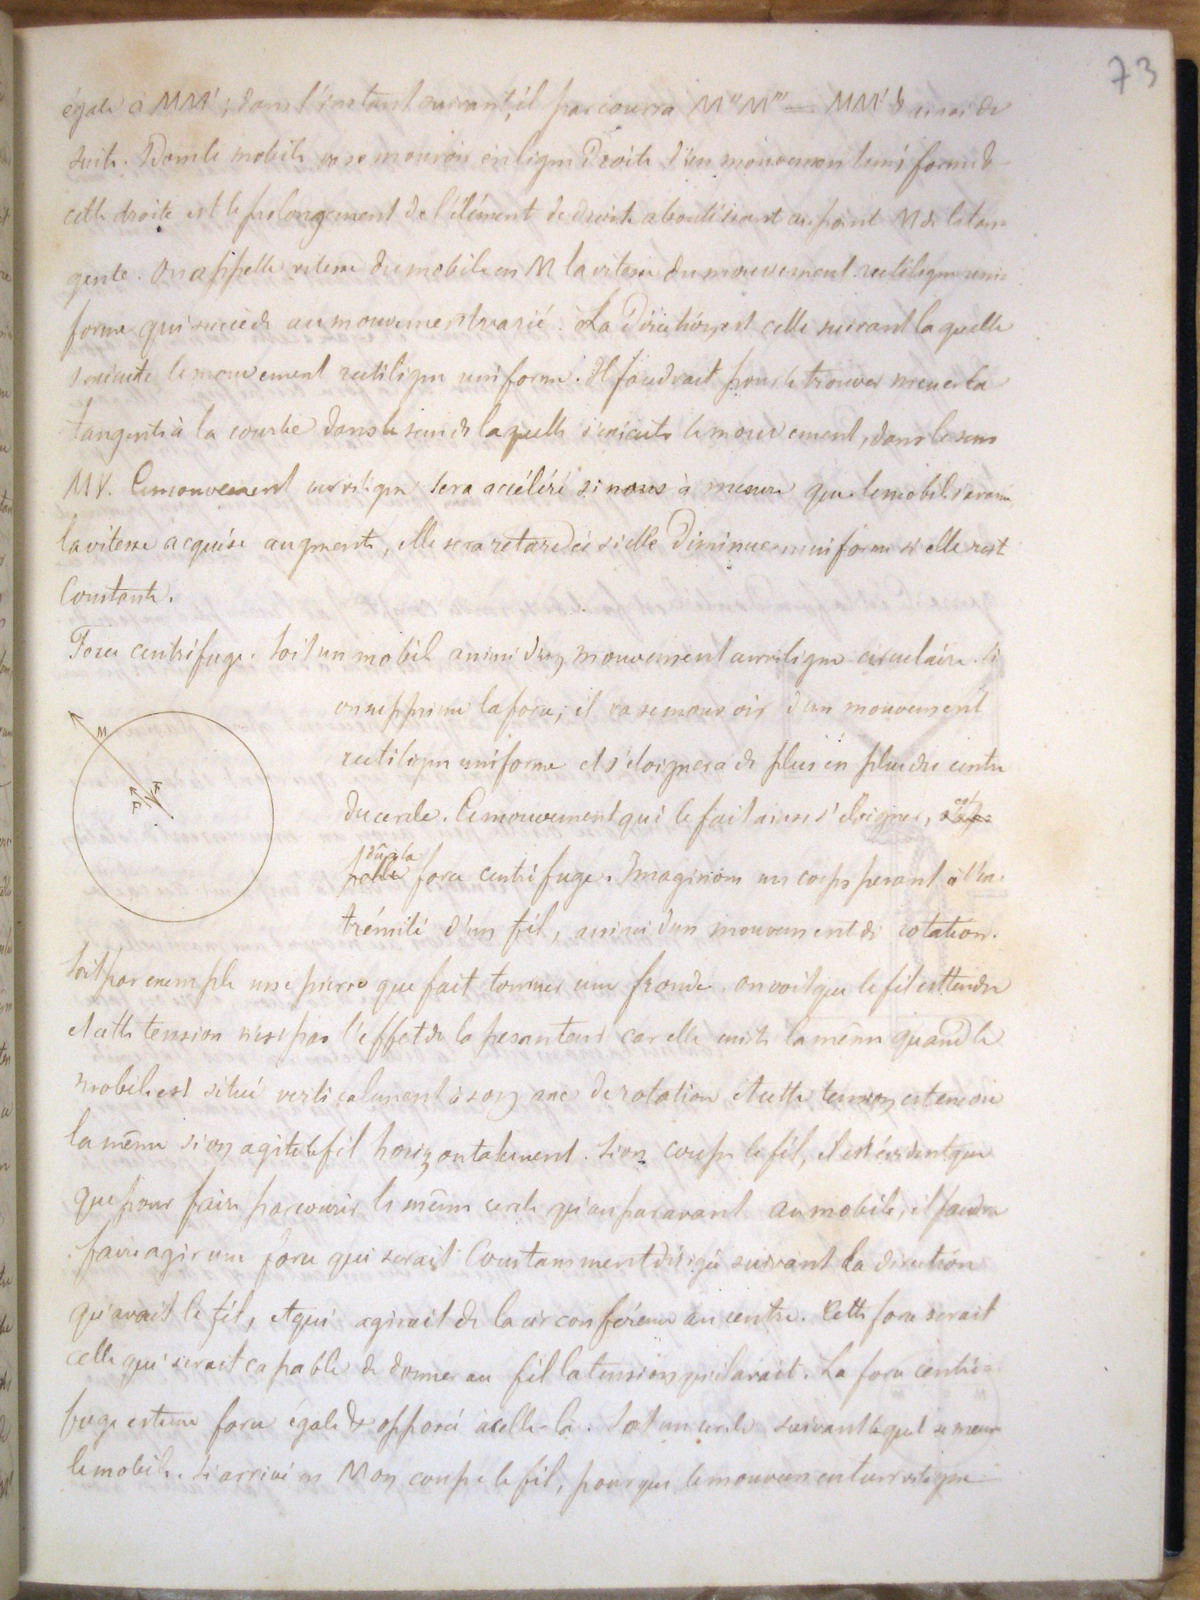 73
égale à MM'; dans l'instant suivant, il parcourra M"M"' = MM' & ainsi de
suite. Donc le mobile va se mouvoir en ligne droite d'un mouvement uniforme &
cette droite est le prolongement de l'élément de droite aboutissant au point M de la tan-
gente. On appelle vitesse du mobile en M la vitesse du mouvement rectiligne uni-
forme qui succède au mouvement varié. La direction est celle suivant laquelle
s'exécute le mouvement rectiligne uniforme. Il faudrait pour le trouver mener la
tangente à la courbe dans le sens de laquelle s'exécute le mouvement, dans le sens
MV. Ce mouvement curviligne sera accéléré si à mesure que le mobile s'avance
la vitesse acquise augmente, elle sera retardée si elle diminue uniforme si elle reste
Constante.
Force centrifuge. Soit un mobile animé d'un mouvement curviligne circulaire. Si
on supprime la force, il va se mouvoir d'un mouvement
rectiligne uniforme et s'éloignera de plus en plus du centre
du cercle. Ce mouvement qui le fait ainsi s'éloigner, est
dû à la force centrifuge. Imaginons un corps pesant à l'ex-
trémité d'un fil, animé d'un mouvement de rotation.
M
F
F
Soit par exemple une pierre que fait tourner une fronde. on voit que le fil est tendu
et cette tension n'est pas l'effet de la pesanteur car elle existe la même quand le
mobile est situé verticalement à son axe de rotation et cette tension est encore
la même si on agite le fil horizontalement. Si on coupe le fil, il est évident que
que pour faire parcourir le même cercle qu'auparavant au mobile, il faudra
faire agir une force qui serait Constamment dirigée suivant la direction
qu'avait le fil, et qui agirait de la circonférence au centre. Cette force serait
celle qui serait capable de donner au fil la tension qu'il avait. La force centri-
fuge est une force égale & opposée à celle-là. Soit un cercle suivant lequel se meut
le mobile. Si arrivé en M on coupe le fil, pour que le mouvement curviligne